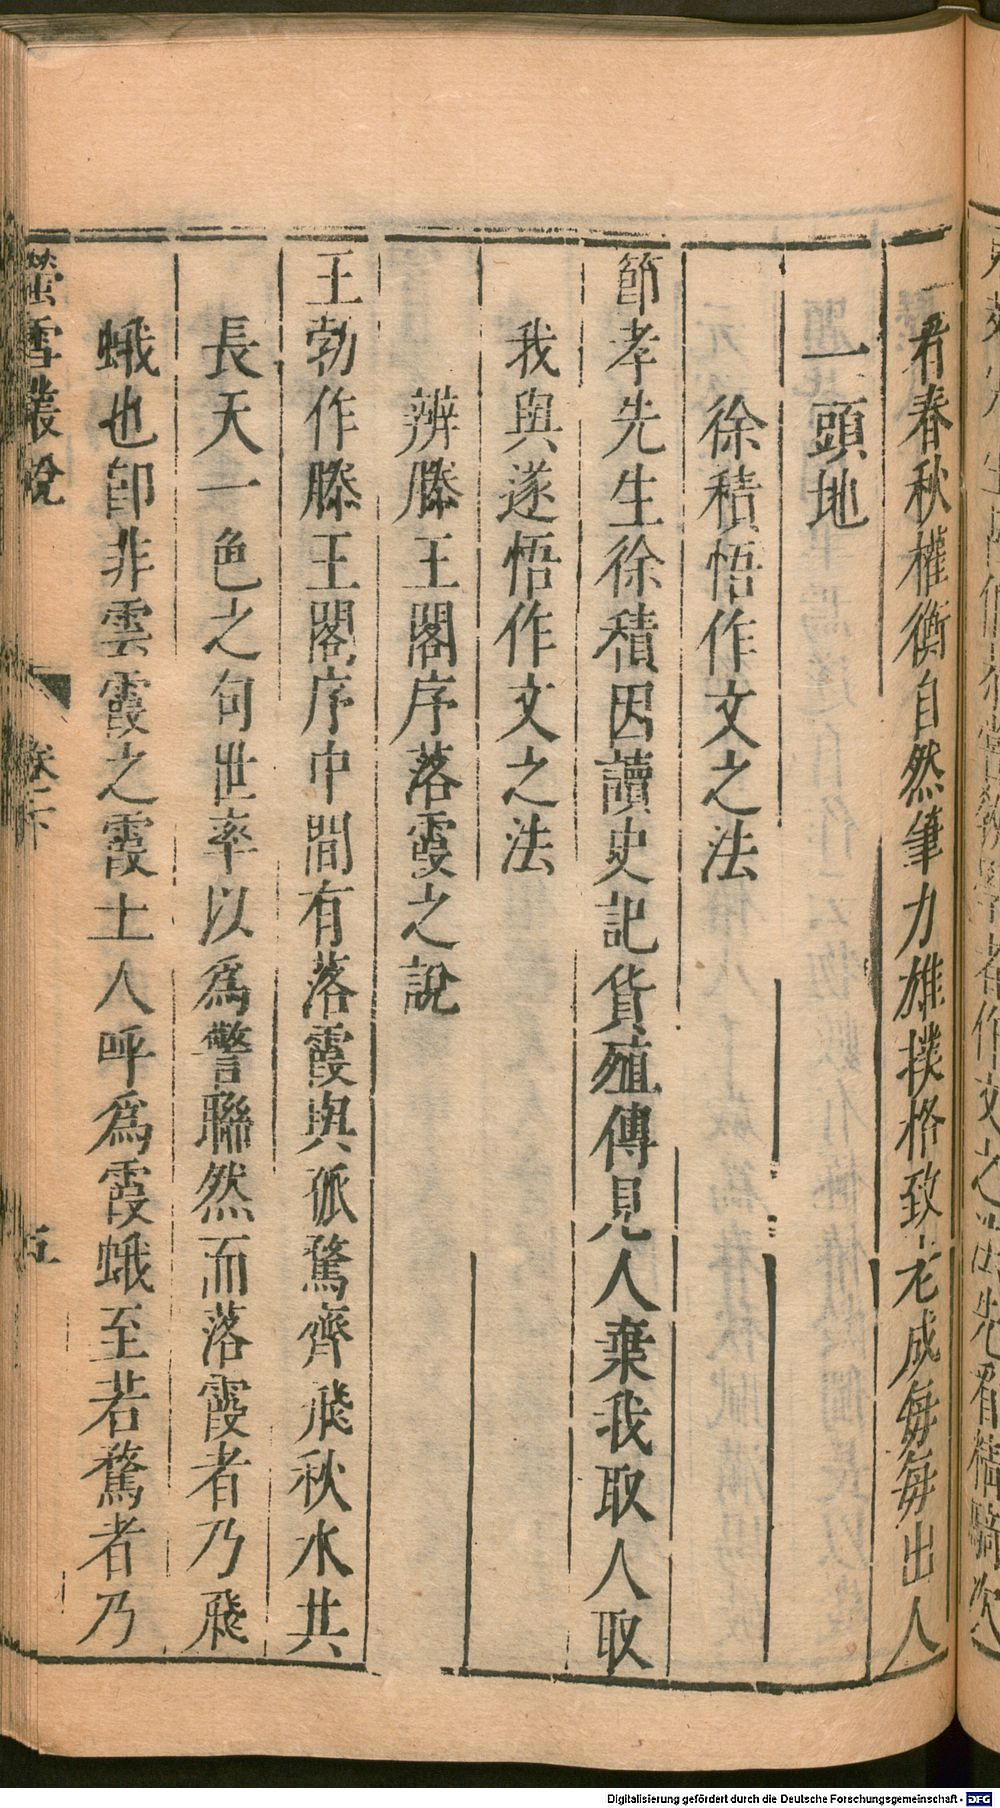 看春秋權衡自然筆力雄撲格致老成每每出人
一頭地
徐積悟作文之法
節孝先生徐積因讀史記貨殖傳見人棄我取人取
我與遂悟作文之法
辨滕王閣序落霞之說
王勃作滕王閣序中間有落霞與孤騖齊飛秋水共
長天一色之句世率以爲警聯然而落霞者乃飛
蛾也卽非雲霞之霞土人呼爲霞蛾至若騖者乃
螢雪叢說
卷下
五
Digitalisierung gefördert durch die Deutsche Forschungsgemeinschaft - DFG